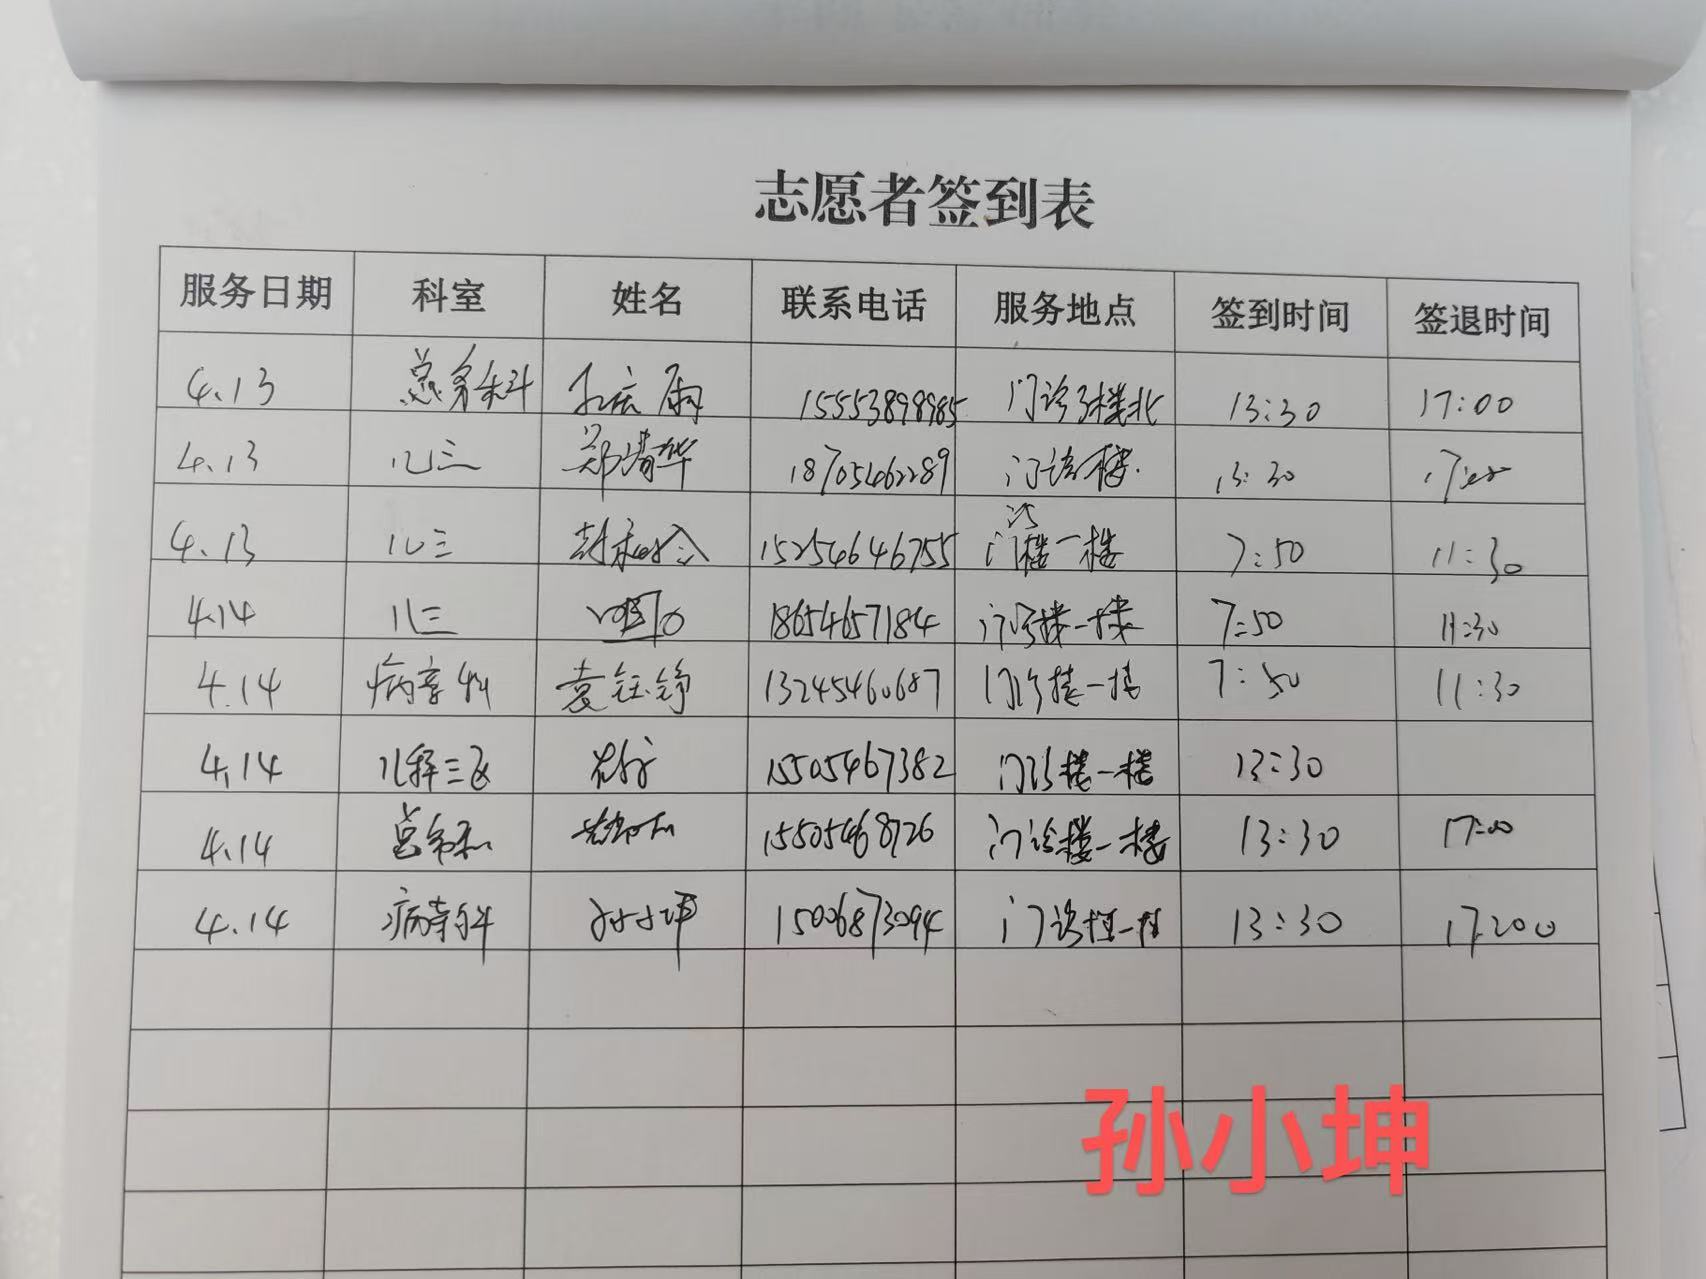 志愿者签到表
服务日期 科室 姓名 联系电话 服务地点 签到时间 签退时间
4.13 总务科 15553898985 门诊3楼北 13:30 17:00
4.13 儿三 郑清华 18705462289 门诊楼. 13:30
4.13 儿三 15254646755 门诊楼一楼 7:50 11:30
4.14 儿三 18654657184 门诊楼一楼 7:50 11:30
4.14 病案科 袁钰铮 13245460687 门诊楼一楼 7:50 11:30
4.14 儿科三区 15505467382 门诊楼一楼 13:30
4.14 总务科 15505468726 门诊楼一楼 13:30 17:00
4.14 病案科 孙小坤 15006873094 门诊楼一楼 13:30 17:00
孙小坤